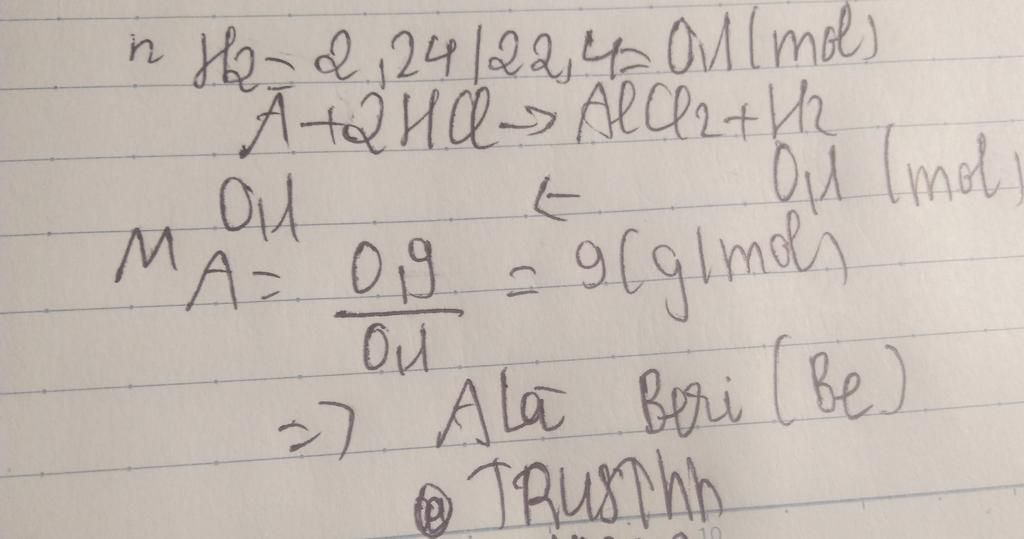 n H2 = 2,24/22,4 = 0,1 (mol)
A + 2HCl → AlCl2 + H2
0,1 ← 0,1 (mol)
M A = 0,9 / 0,1 = 9 (g/mol)
=> A là Beri (Be)
TRUSThh